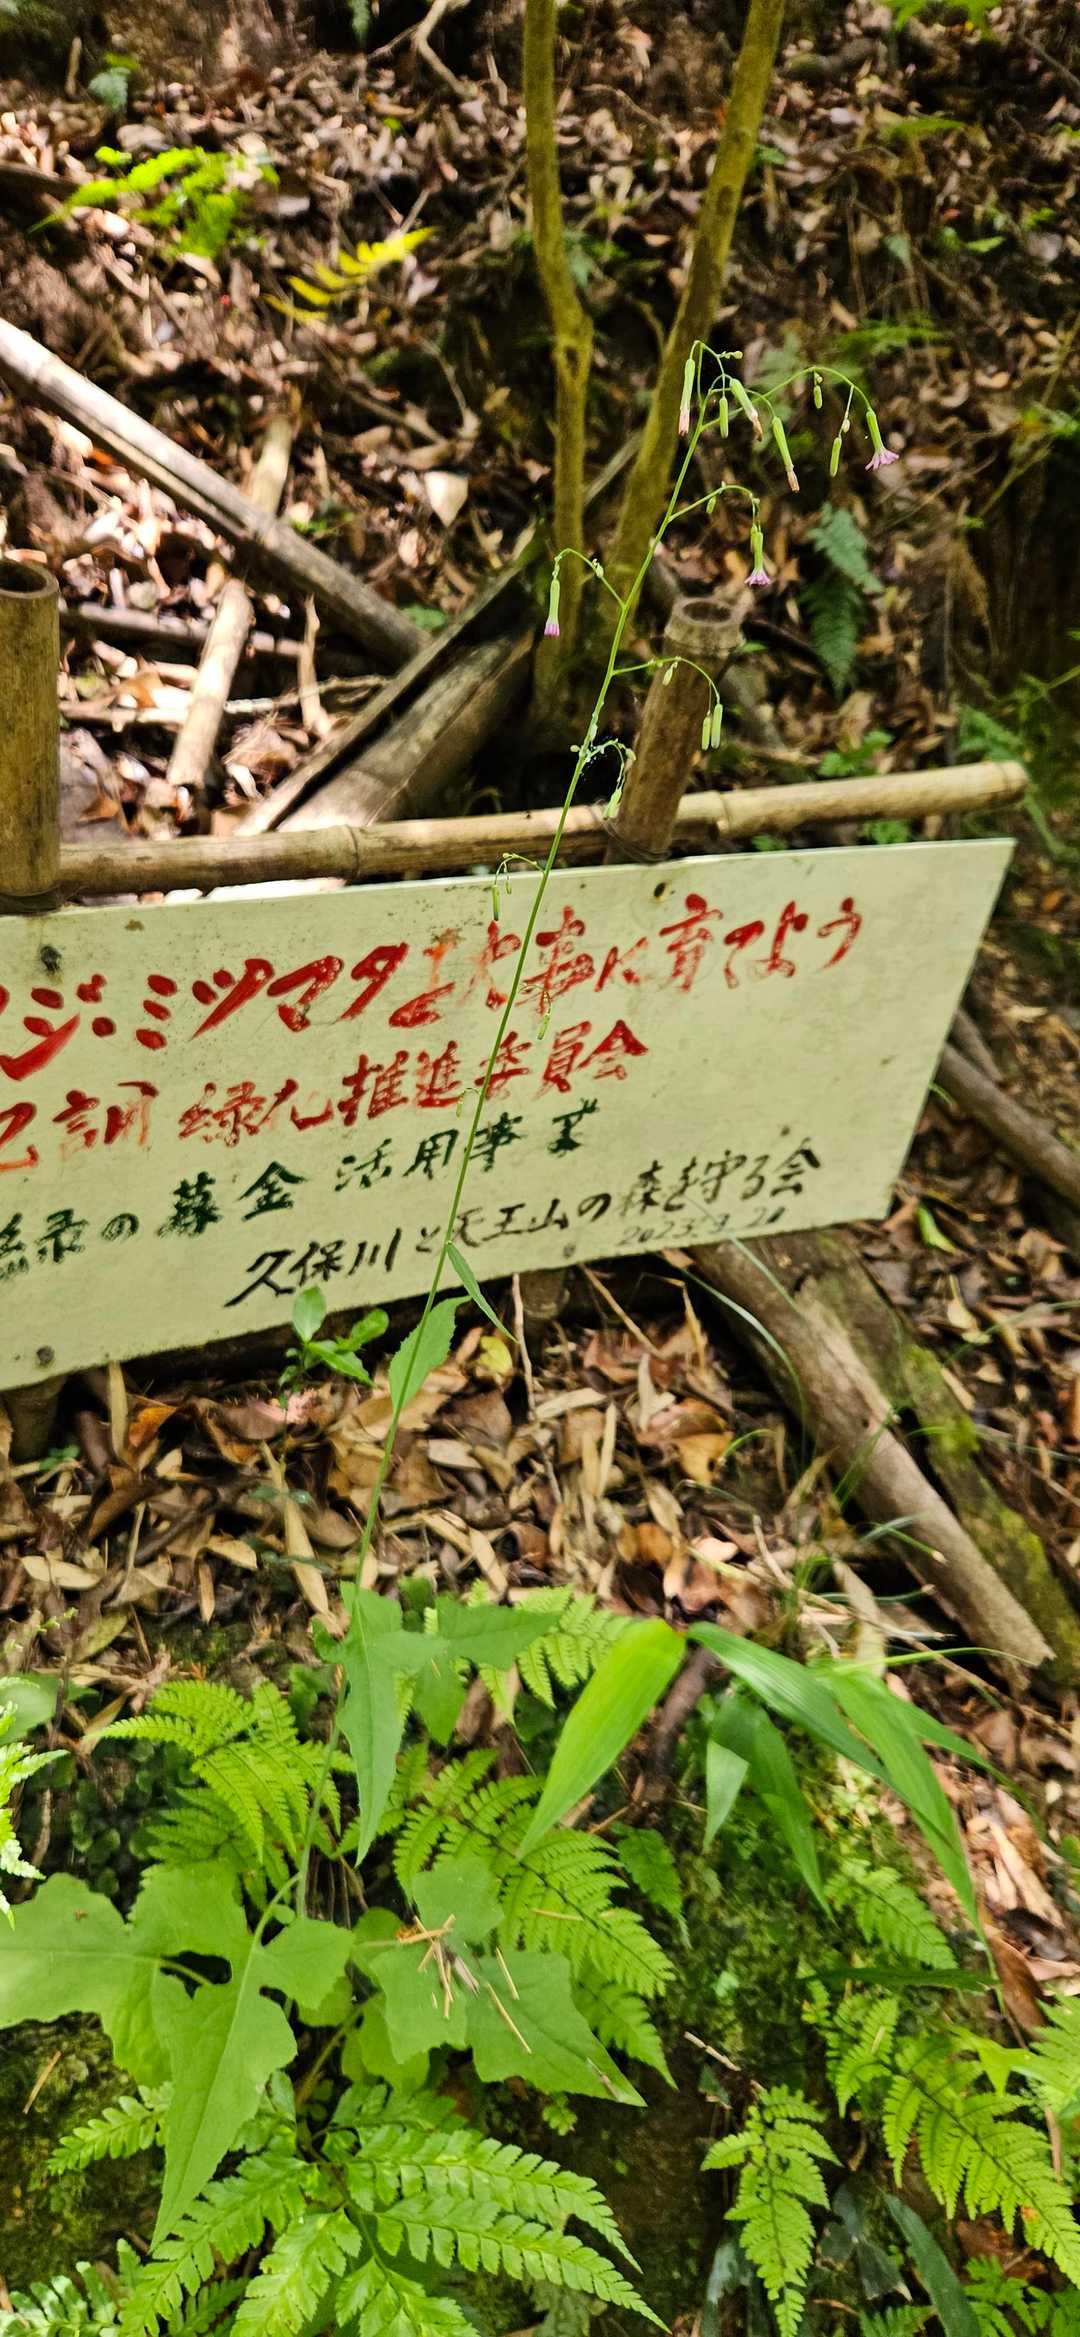 ジ・ミツマタを大事に育てよう
乙訓 緑化推進委員会
緑の募金 活用事業
久保川と天王山の森を守る会
2023.9.21